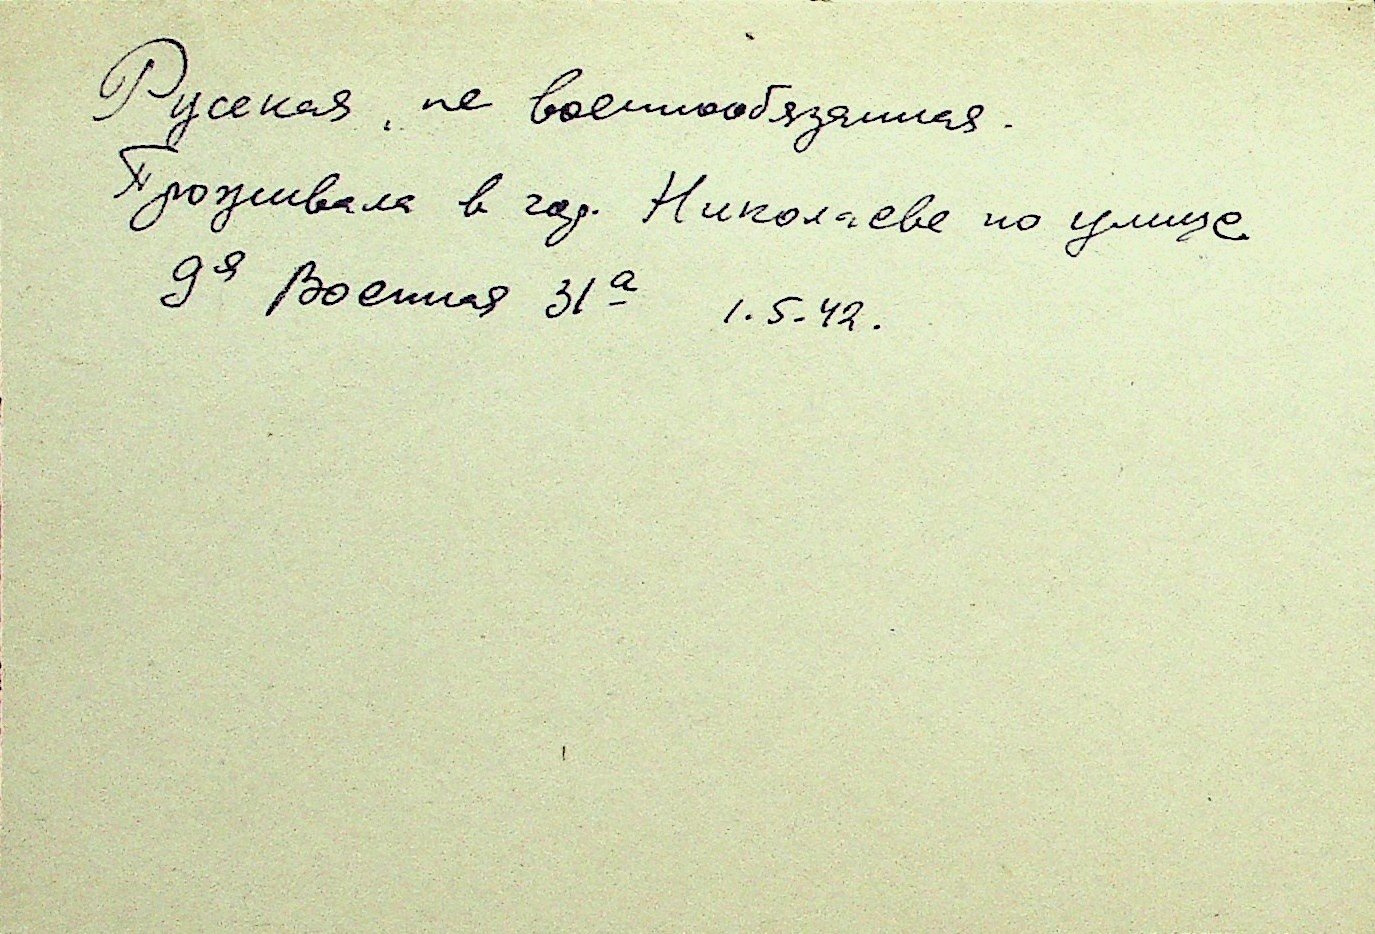 Русская, не военнообязанная.
Проживала в гор. Николаеве по улице
9я Военная 31а 1.5.42.